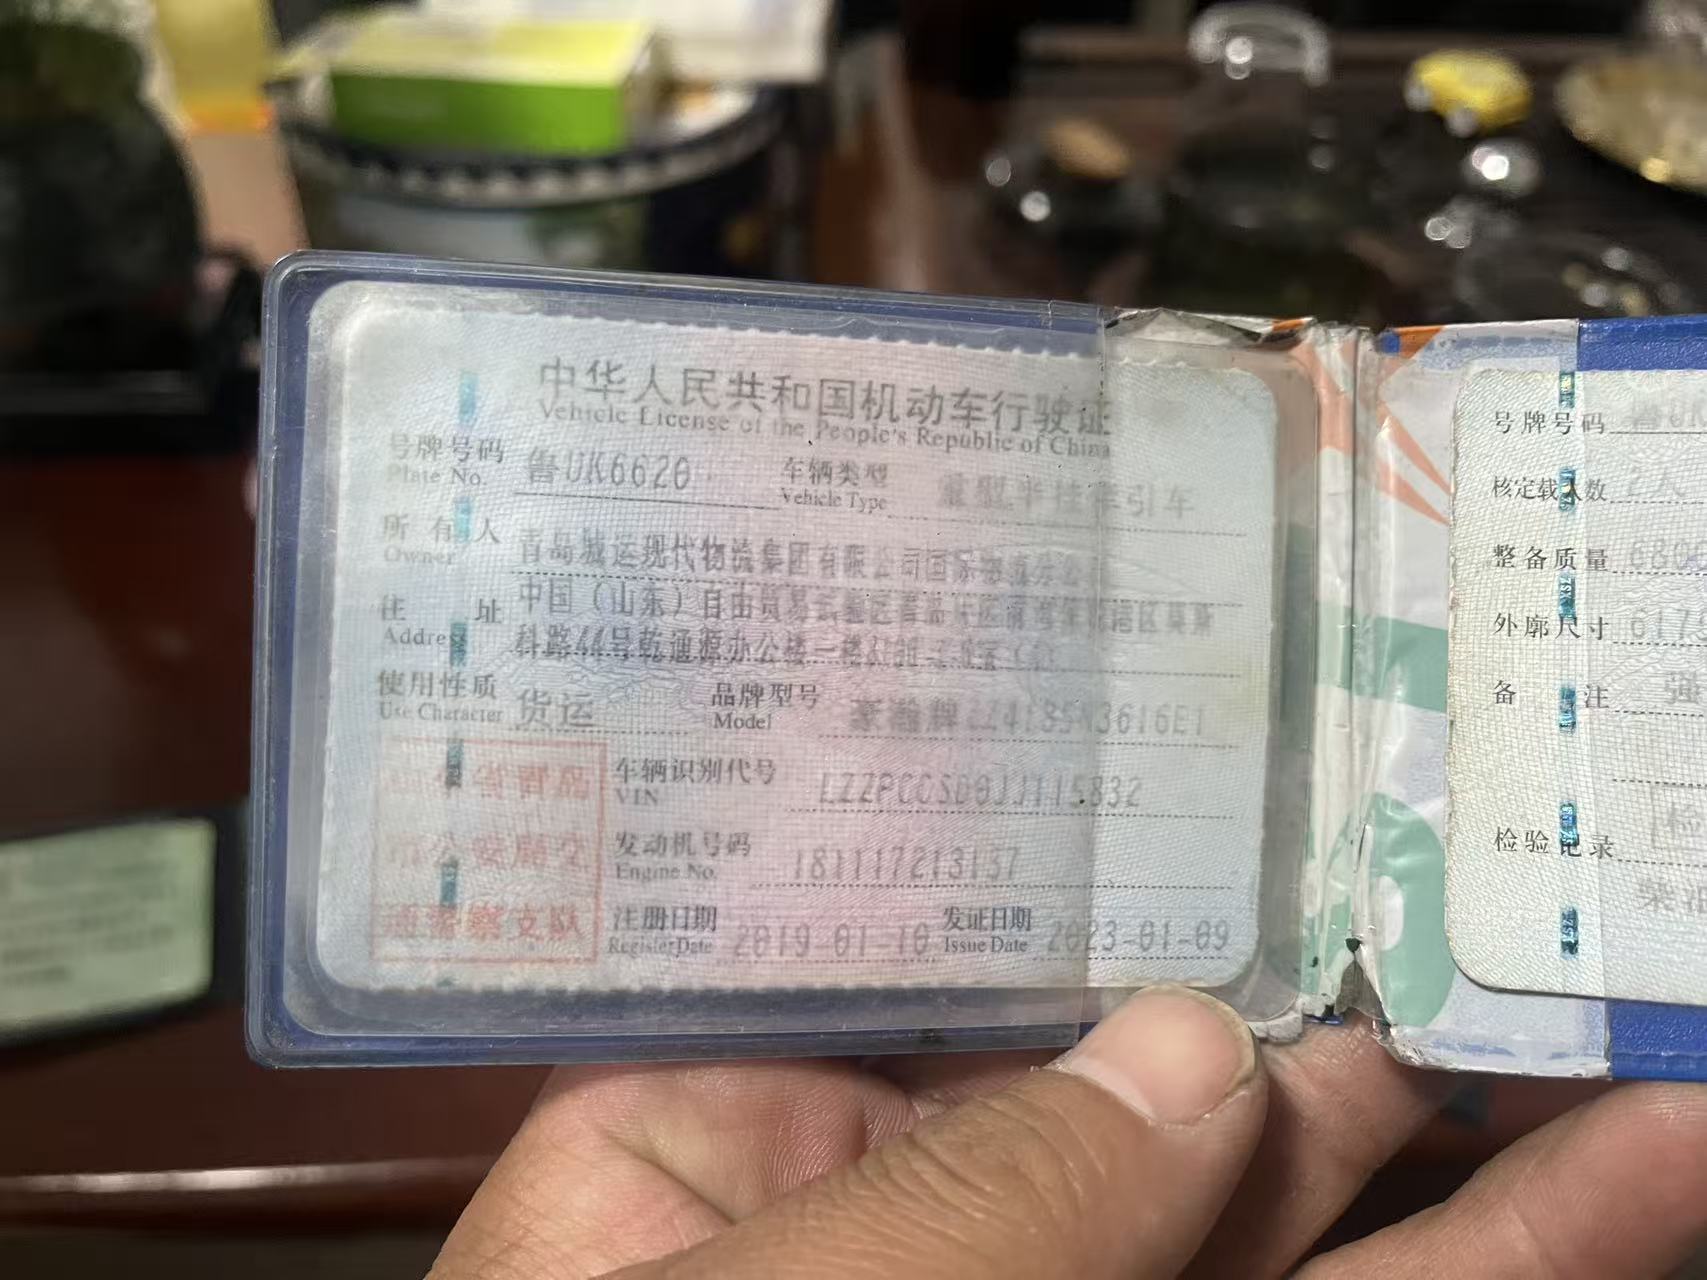 中华人民共和国机动车行驶证
Vehicle License of the People's Republic of China
号牌号码 鲁UK6620 车辆类型 重型半挂牵引车
Plate No. Vehicle Type
所有人 青岛城运现代物流集团有限公司国际物流分公
Owner
住址 中国（山东）自由贸易试验区青岛片区前湾保税港区莫斯
Address 科路44号乾通源办公楼一楼
使用性质 货运 品牌型号 豪瀚牌
Use Character Model
车辆识别代号 LZZPCCSD0JJ115832
VIN
发动机号码 181117213137
Engine No.
注册日期 2019-01-10 发证日期 2023-01-09
Register Date Issue Date
山东省青岛
市公安局交
通警察支队
号牌号码
核定载人数 2人
整备质量 680
外廓尺寸 617
备注 强
检验记录